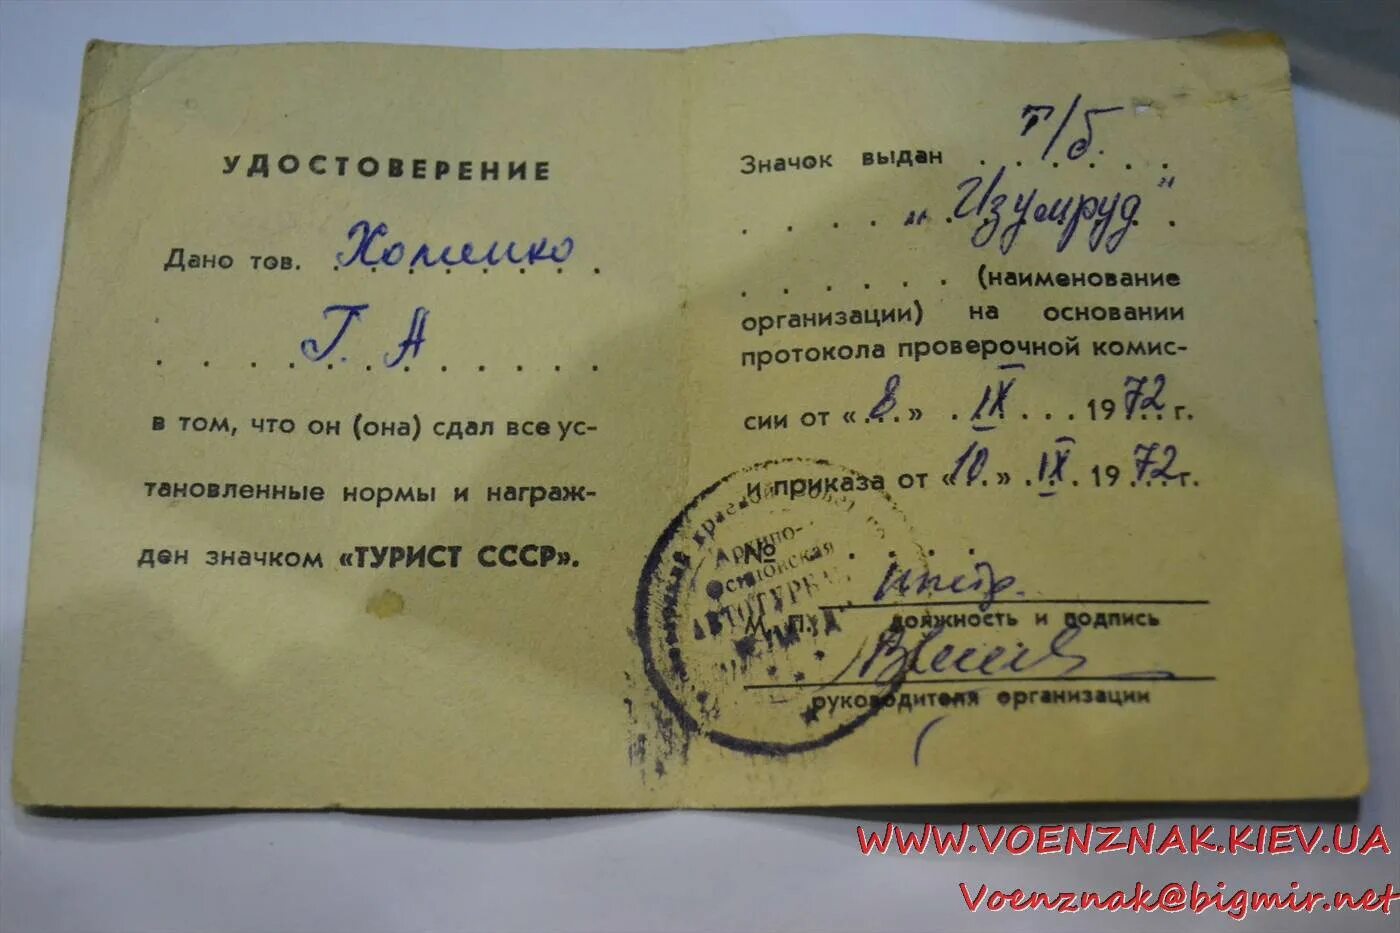 УДОСТОВЕРЕНИЕ
Дано тов. Хоменко
Г. А
в том, что он (она) сдал все ус-
тановленные нормы и награж-
ден значком «ТУРИСТ СССР».
Значок выдан т/б.
„Изумруд"
(наименование
организации) на основании
протокола проверочной комис-
сии от «8.» IX 1972 г.
и приказа от «10.» IX 1972 г.
№
Архипо-
осиповская
АВТОТУРБАЗА
М. П.
должность и подпись
руководителя организации
WWW.VOENZNAK.KIEV.UA
Voenznak@bigmir.net